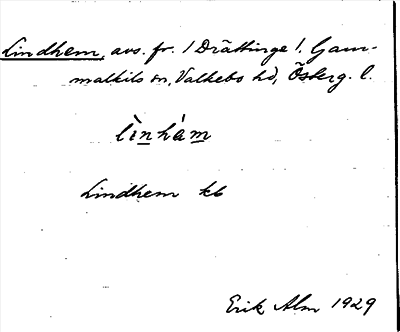 Lindhem, avs. fr. / Drättinge /. Gam-
malkils sn, Valkebo hd, Österg. l.
lìnhàm
Lindhem kb
Erik Alm 1929